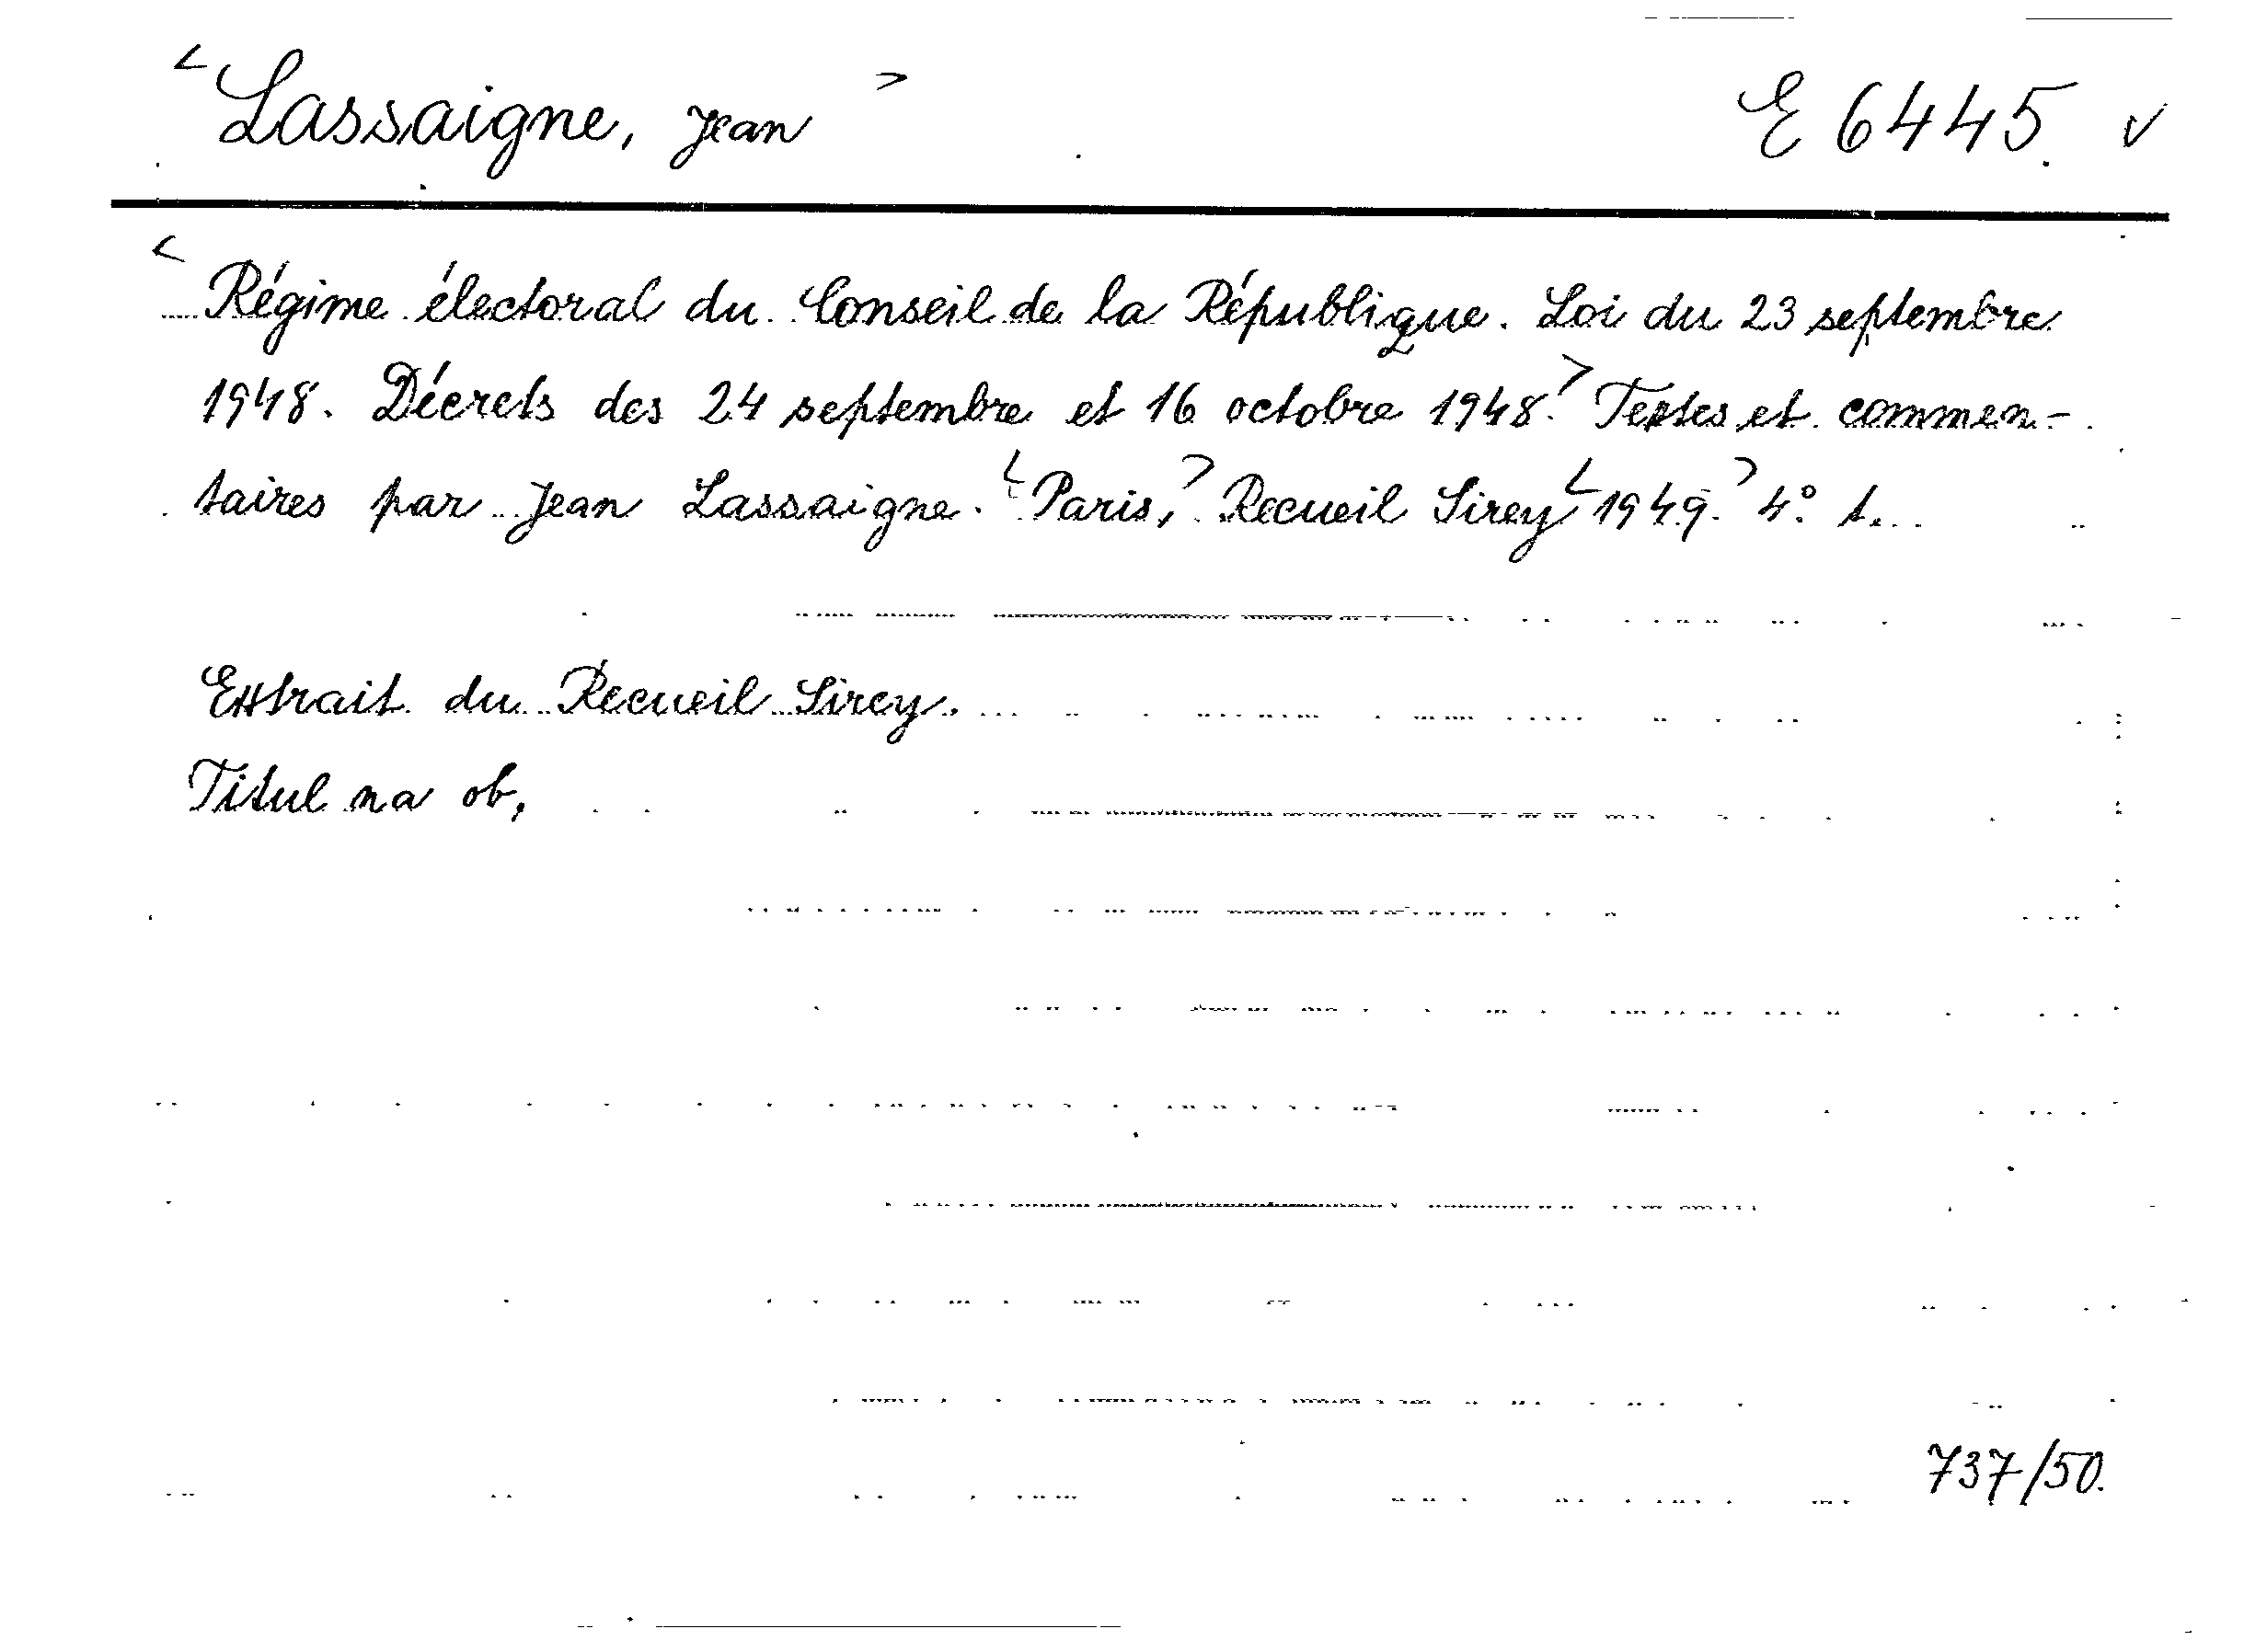 < Lassaigne, Jean > E 6445. v
< Régime électoral du Conseil de la République. Loi du 23 septembre
1948. Décrets des 24 septembre et 16 octobre 1948. > Textes et commen-
taires par Jean Lassaigne. < Paris, > Recueil Sirey < 1949. > 4° 1.
Extrait du Recueil Sirey.
Titul na ob,
737/50.